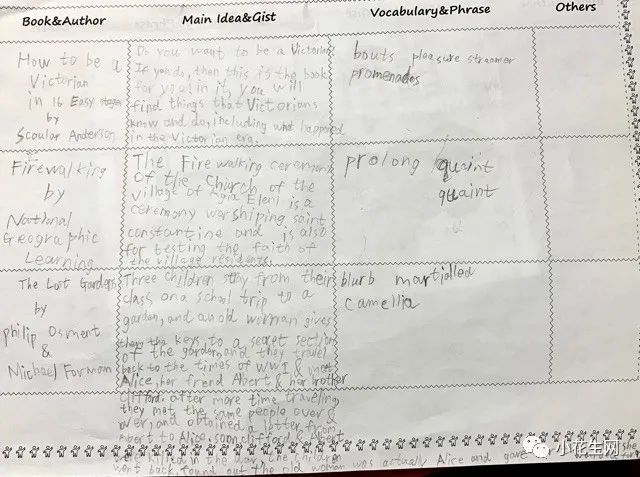 Book&Author Main Idea&Gist Vocabulary&Phrase Others
How to be a
Victorian
in 16 Easy
by
Scoular Anderson
Do you want to be a Victorian?
If you do, then this is the book
for you! in it, you will
find things that Victorians
know and do, including what happened
in the Victorian era.
bouts pleasure streamer
promenades
Firewalking
by
National
Geographic
Learning
The Fire walking ceremony
of the Church of the
village of Agia Eleni is a
ceremony worshiping saint
constantine and is also
for testing the faith of
the village residents.
prolong quaint
quaint
The Lost Garden
by
philip Osment
&
Michael Forman
Three children stay from their
class on a school trip to a
garden, and an old woman gives
them the keys to a secret section
of the garden, and they travel
back to the times of WWI & meet
Alice, her friend Albert & her brother
Clifford. after more time traveling,
they met the same people over &
over, and obtained a letter from
Albert to Alice. soon, clifford & Albert
were killed in the war. the children
went back, found out the old woman was actually Alice and gave
blurb martialled
camellia
小花生网